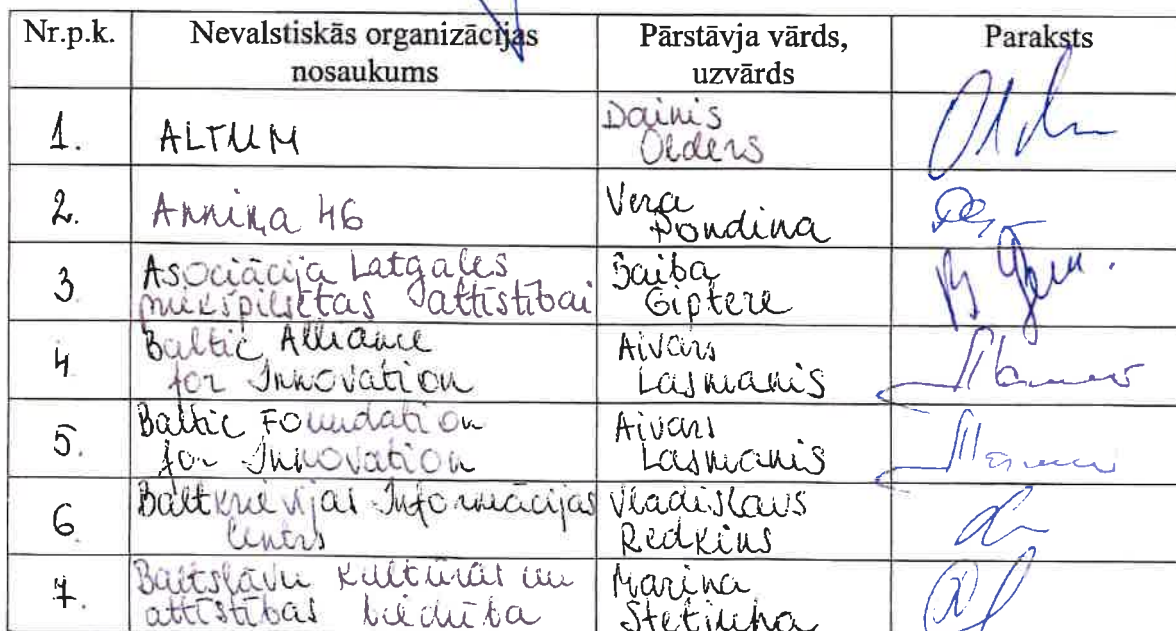 Nr.p.k. Nevalstiskās organizācijas nosaukums Pārstāvja vārds, uzvārds Paraksts
1. ALTUM Dainis Olders
2. Anniņa 46 Vera Pondina
3 Asociācija Latgales mikšpilsētas attīstībai Baiba Giptere
4 Baltic Alliance for Innovation Aivars Lasmanis
5. Baltic Foundation for Innovation Aivars Lasmanis
6 Baltkrievijas Informācijas Centrs Vladislavs Redkins
7. Baltslāvu kultūras un attīstības biedrība Marina